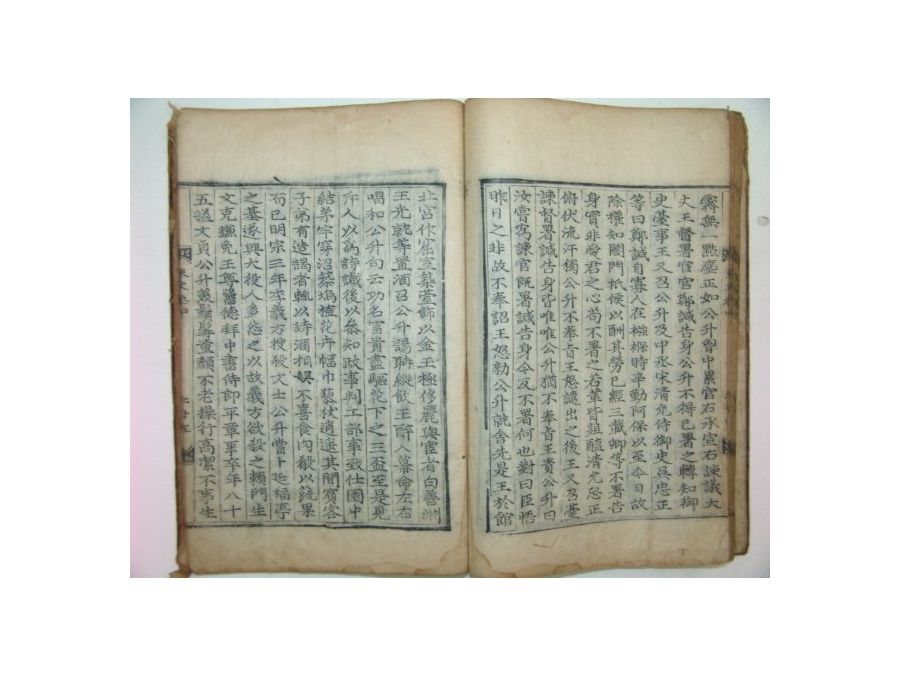 霽無一點塵正如公升胷中累官右承宣右諫議大
夫王督署宦官鄭諴告身公升不得已署之轉知御
史臺事王又召公升及中丞宋淸允侍御史吳忠正
等曰鄭諴自寡人在襁褓時辛勤阿保以至今日故
除權知閤門祗候以酬其勞已經三載卿等不署告
身實非愛君之心尚不署之若輩皆殖醢淸允忠正
俯伏流汗獨公升不奉旨王怒譴出之後王又召臺
諫督署諴告身皆唯唯公升猶不奉旨王責公升曰
汝嘗爲諫官旣署諴告身今反不署何也對曰臣悟
昨日之非故不奉詔王怒勑公升就舍先是王於館
北宮作窟室築臺飾以金玉極侈麗與宦者白善淵
王光就等置酒召公升謁聃縱飮王醉入幕命左右
唱和公升句云功名富貴盡驅花下之三盃至是見
斥人以爲詩讖後以叅知政事判工部事致仕園中
結茅宇穿沼築塢植花卉幅巾藜杖逍遙其間賓客
子弟有造謁者輒以詩酒相娛不喜食肉殺以蔬果
而已明宗三年李義方搜殺文士公升嘗卜延福亭
之基遂興大役人多怨之以故義方欲殺之賴門生
文克謙免王尊舊德拜中書侍郎平章事卒年八十
五謚文貞公升美鬚髯童顏不老操行高潔不事生